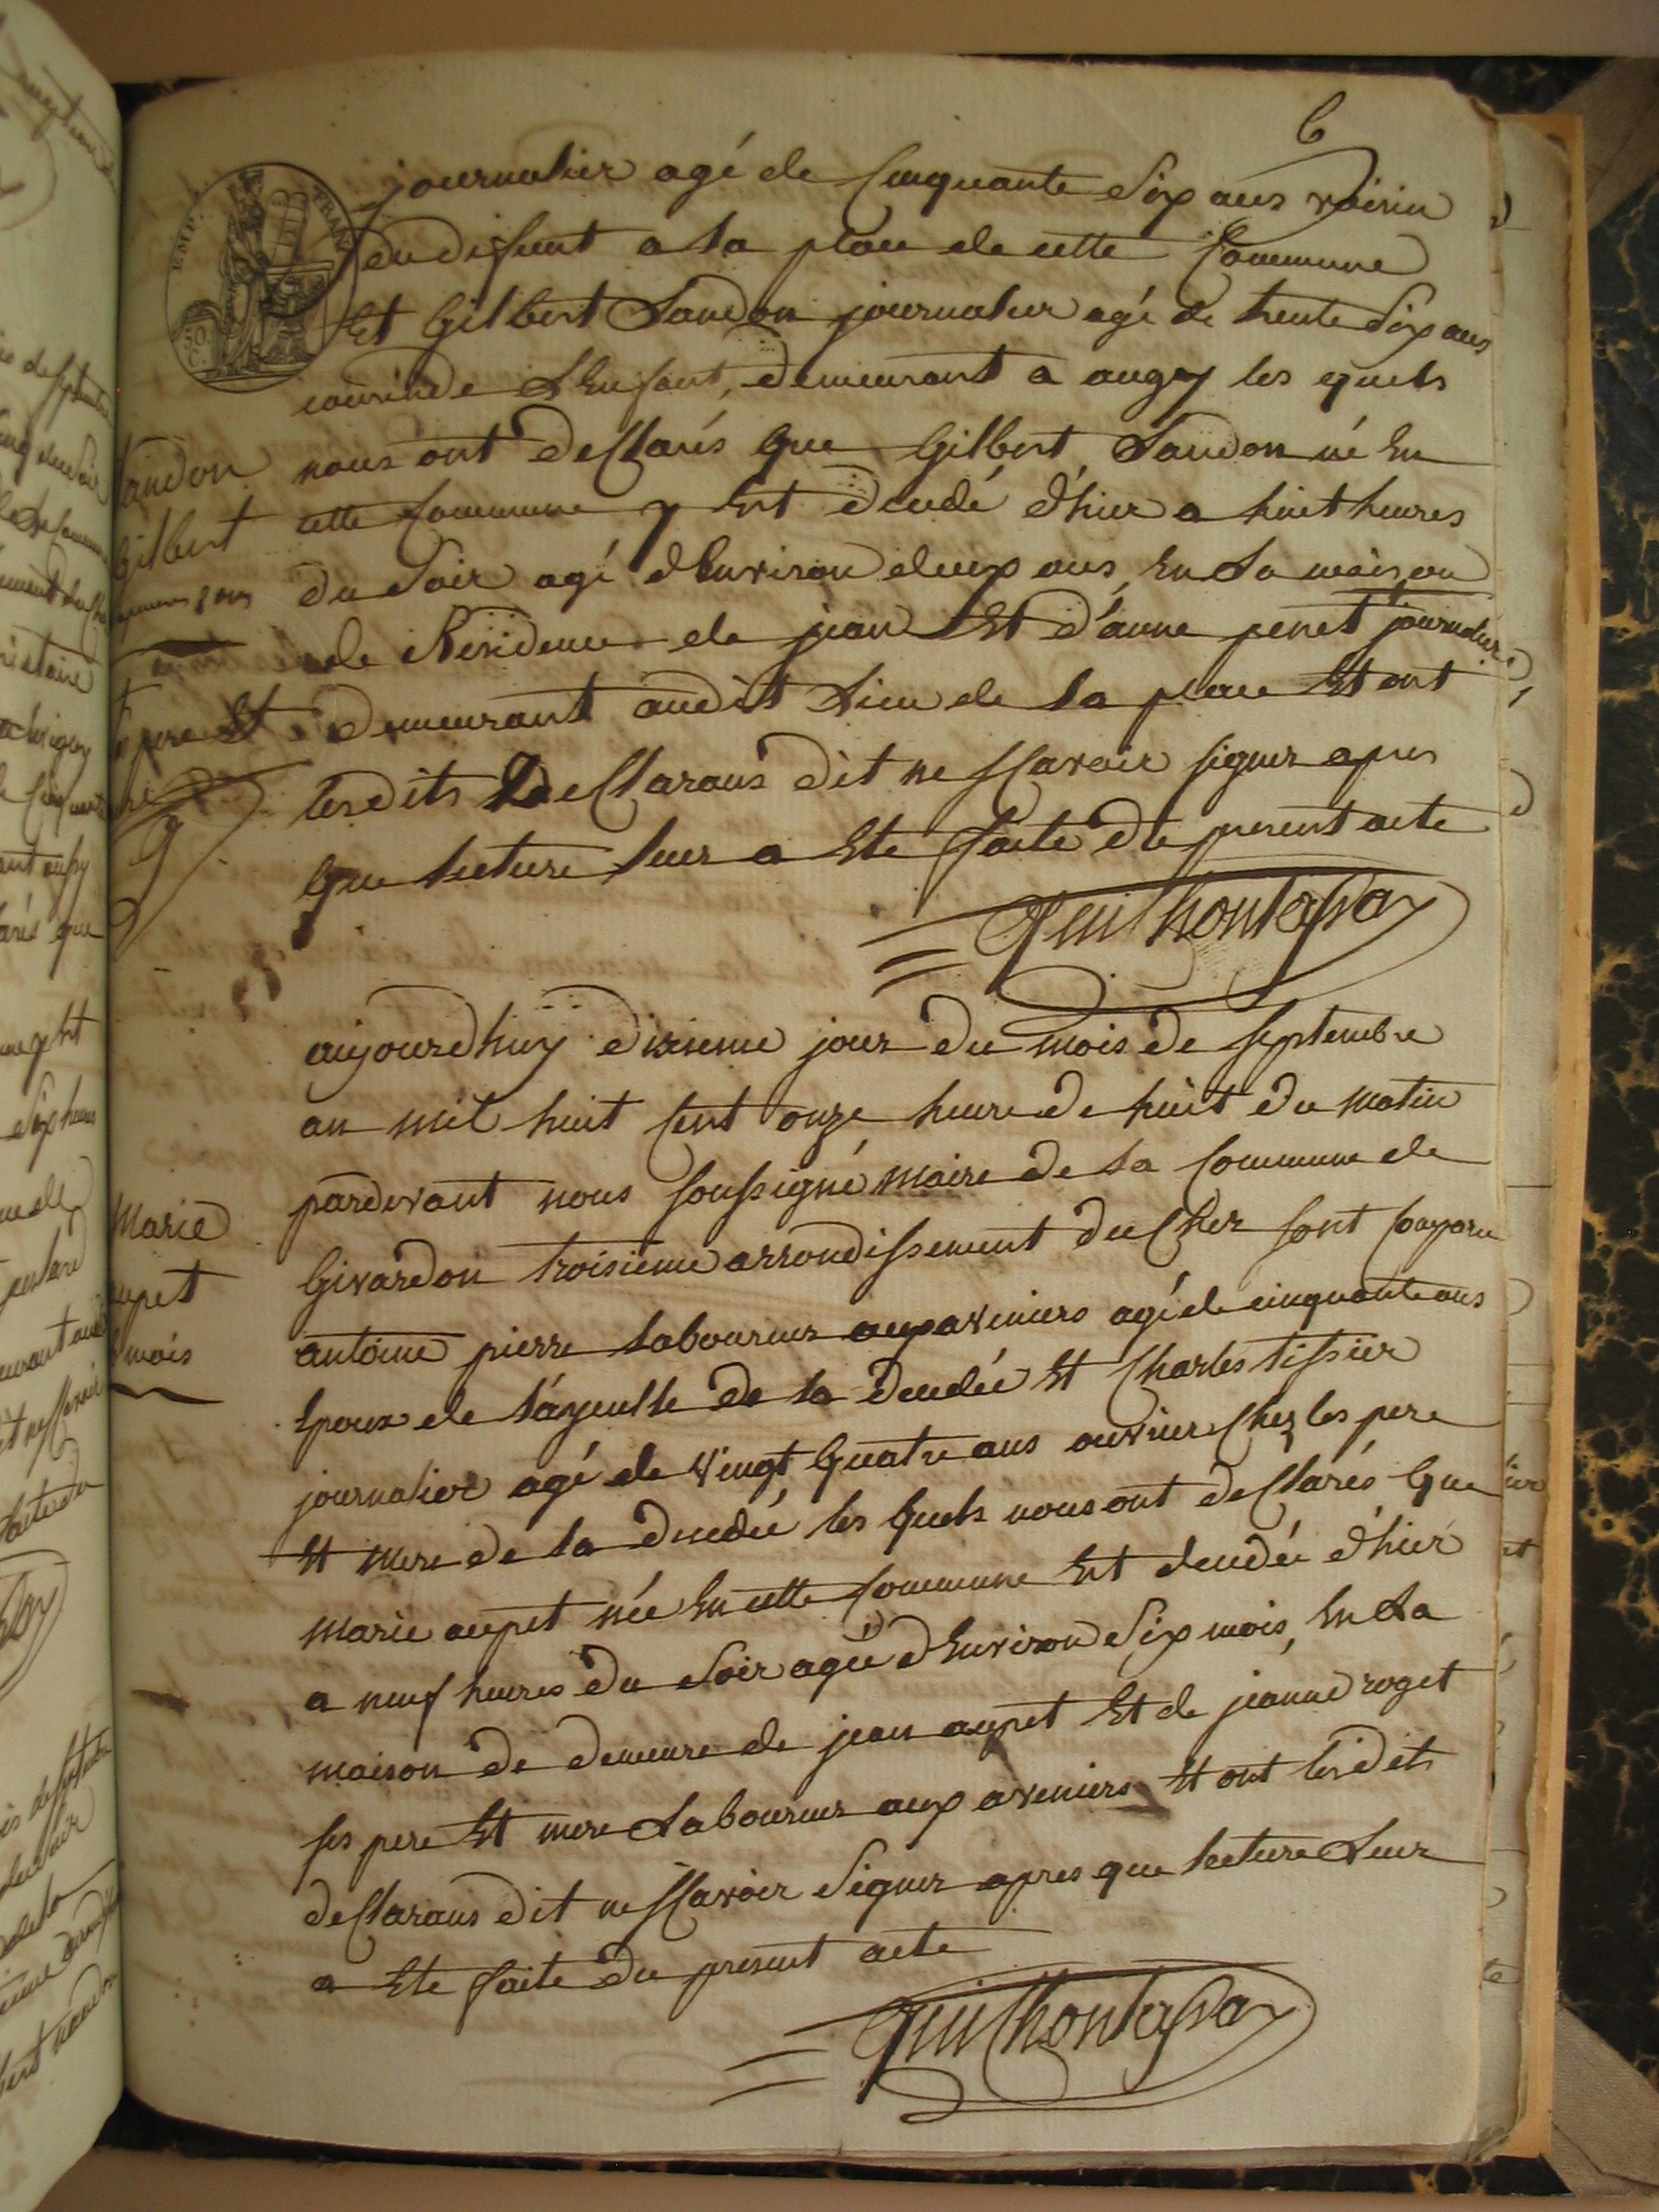 6
journalier agé de Cinquante Six ans voisin
du difunt a la place de cette Commune
Et Gilbert Sandon journalier agé de trente Six ans
cousin de L'Enfant, demeurant a augy les quels
nous ont desClarés que Gilbert Sandon né En
cette Commune y Est decedé d'hier a huit heures
du Soir agé d'Environ deux ans, En La maison
de Residence de jean Et d'anne penet journalier
demeurant audit Lieu de la place Et ont
lesdits DesClarans dit ne sCavoir signer apres
que lecture leur a Eté faite du present acte
aujourdhuy dixieme jour du mois de septembre
an mil huit Cent onze heure de huit du matin
pardevant nous soussigné maire de la Commune de
Givardon troisieme arrondissement du Cher sont Comparu
antoine pierre laboureur aux aveniers agé de cinquante ans
Epoux de l'ayeulle de la decedée Et Charles tissier
journalier agé de vingt quatre ans ouvrier Chez les pere
Et mere de la decedée les quels nous ont desClarés que
marie aupet née En cette Commune Est decedée d'hier
a neuf heures du Soir ageé d'Environ Six mois, En La
maison de demeure de jean aupet Et de jeanne roget
ses pere Et mere Laboureur aux aveniers Et ont lesdits
desClarans dit ne sCavoir Signer apres que lecture Leur
a Eté faite du present acte
EMP.
FRAN.
50
C.
andon
Gilbert
marie
upet
mois